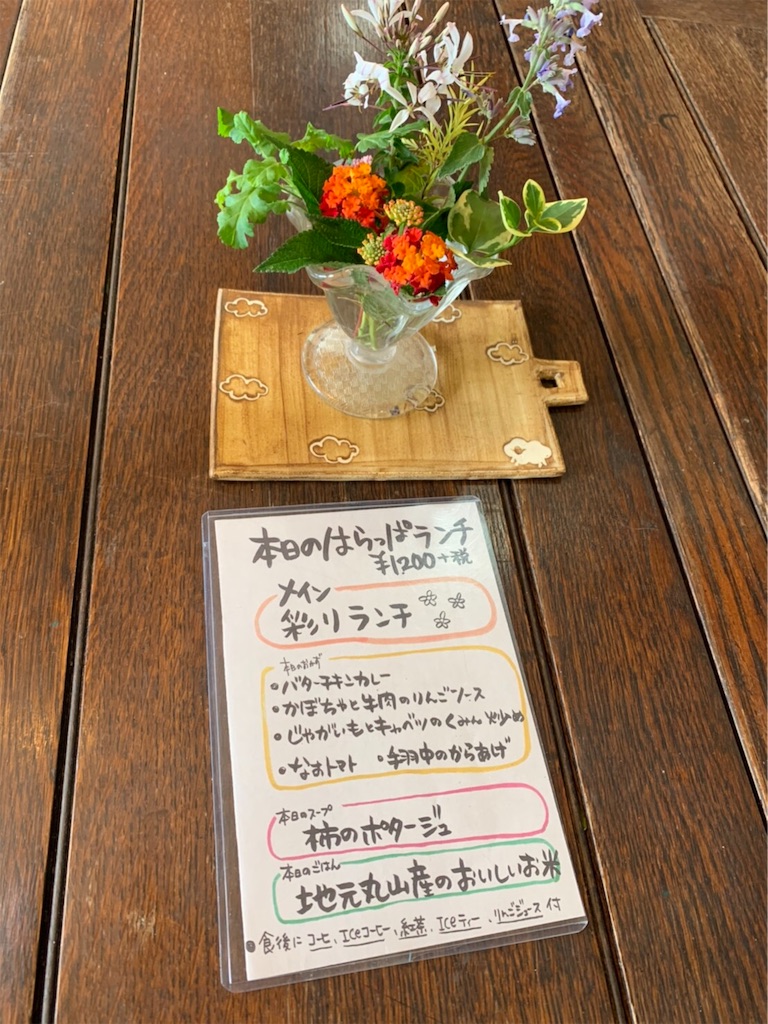 本日のはらっぱランチ
¥1200+税
メイン
彩りランチ
本日のおかず
・バターチキンカレー
・かぼちゃと牛肉のりんごソース
・じゃがいもとキャベツのくみん炒め
・なすトマト ・手羽中のからあげ
本日のスープ
柿のポタージュ
本日のごはん
地元丸山産のおいしいお米
●食後にコーヒ、Iceコーヒー、紅茶、Iceティー、りんごジュース付